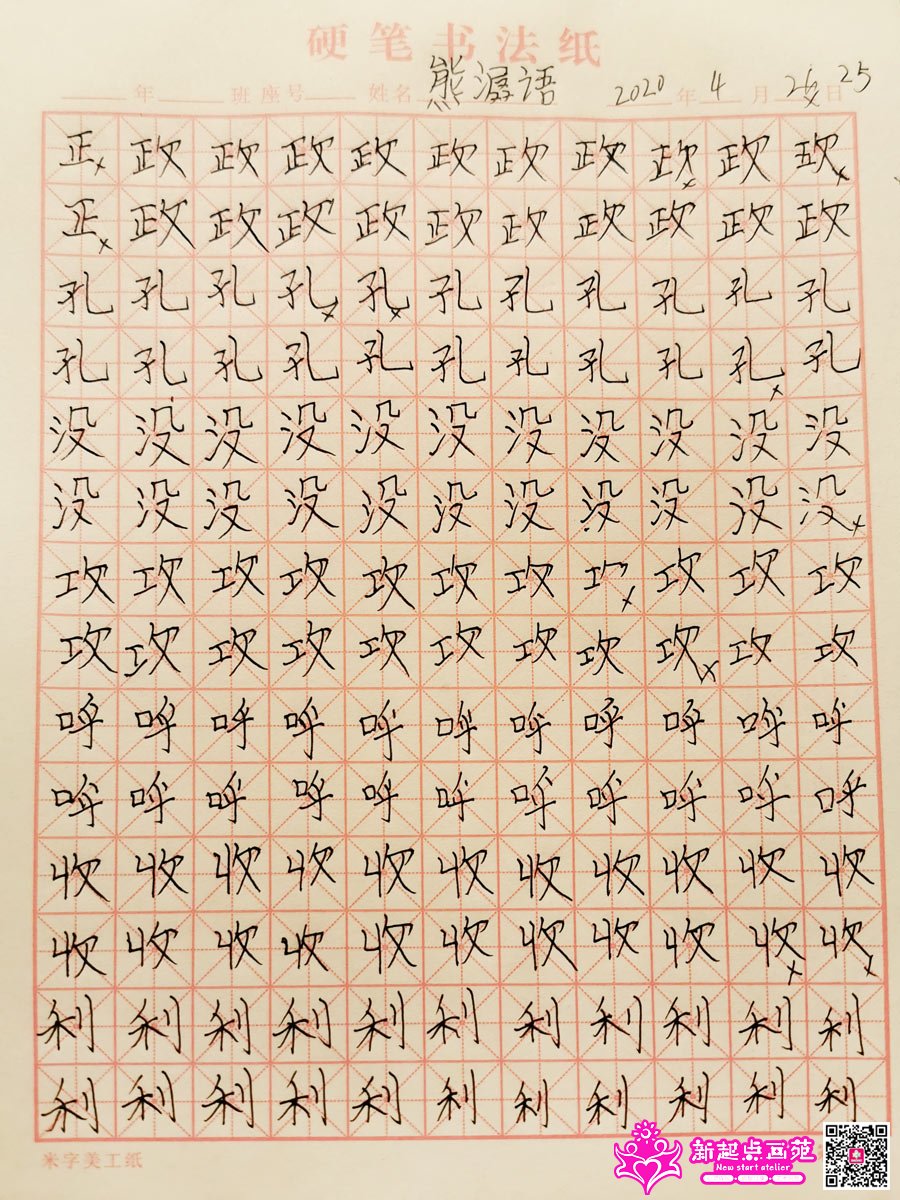 硬笔书法纸
年 班 座号 姓名 熊潺语 2020年4月25日
正政政政政政政政政政政
正政政政政政政政政政政
孔孔孔孔孔孔孔孔孔孔孔
孔孔孔孔孔孔孔孔孔孔孔
没没没没没没没没没没没
没没没没没没没没没没没
攻攻攻攻攻攻攻攻攻攻攻
攻攻攻攻攻攻攻攻攻攻攻
呼呼呼呼呼呼呼呼呼呼呼
呼呼呼呼呼呼呼呼呼呼呼
收收收收收收收收收收收
收收收收收收收收收收收
利利利利利利利利利利利
利利利利利利利利利利利
米字美工纸
新起点画苑
New start atelier